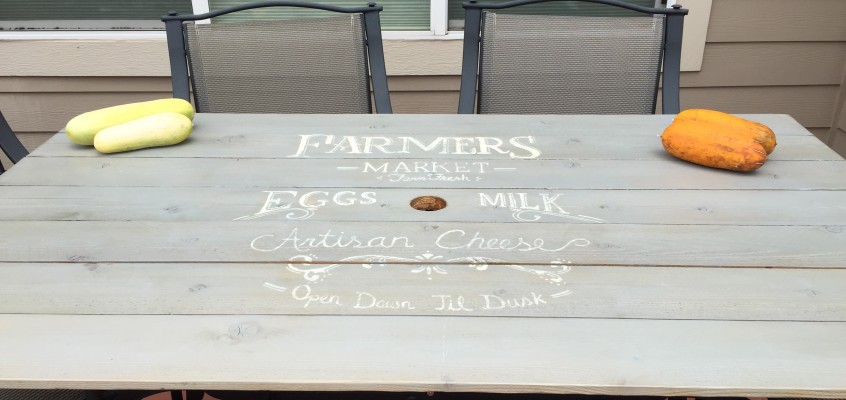 FARMERS
MARKET
Farm Fresh
EGGS MILK
Artisan Cheese
Open Dawn Til Dusk